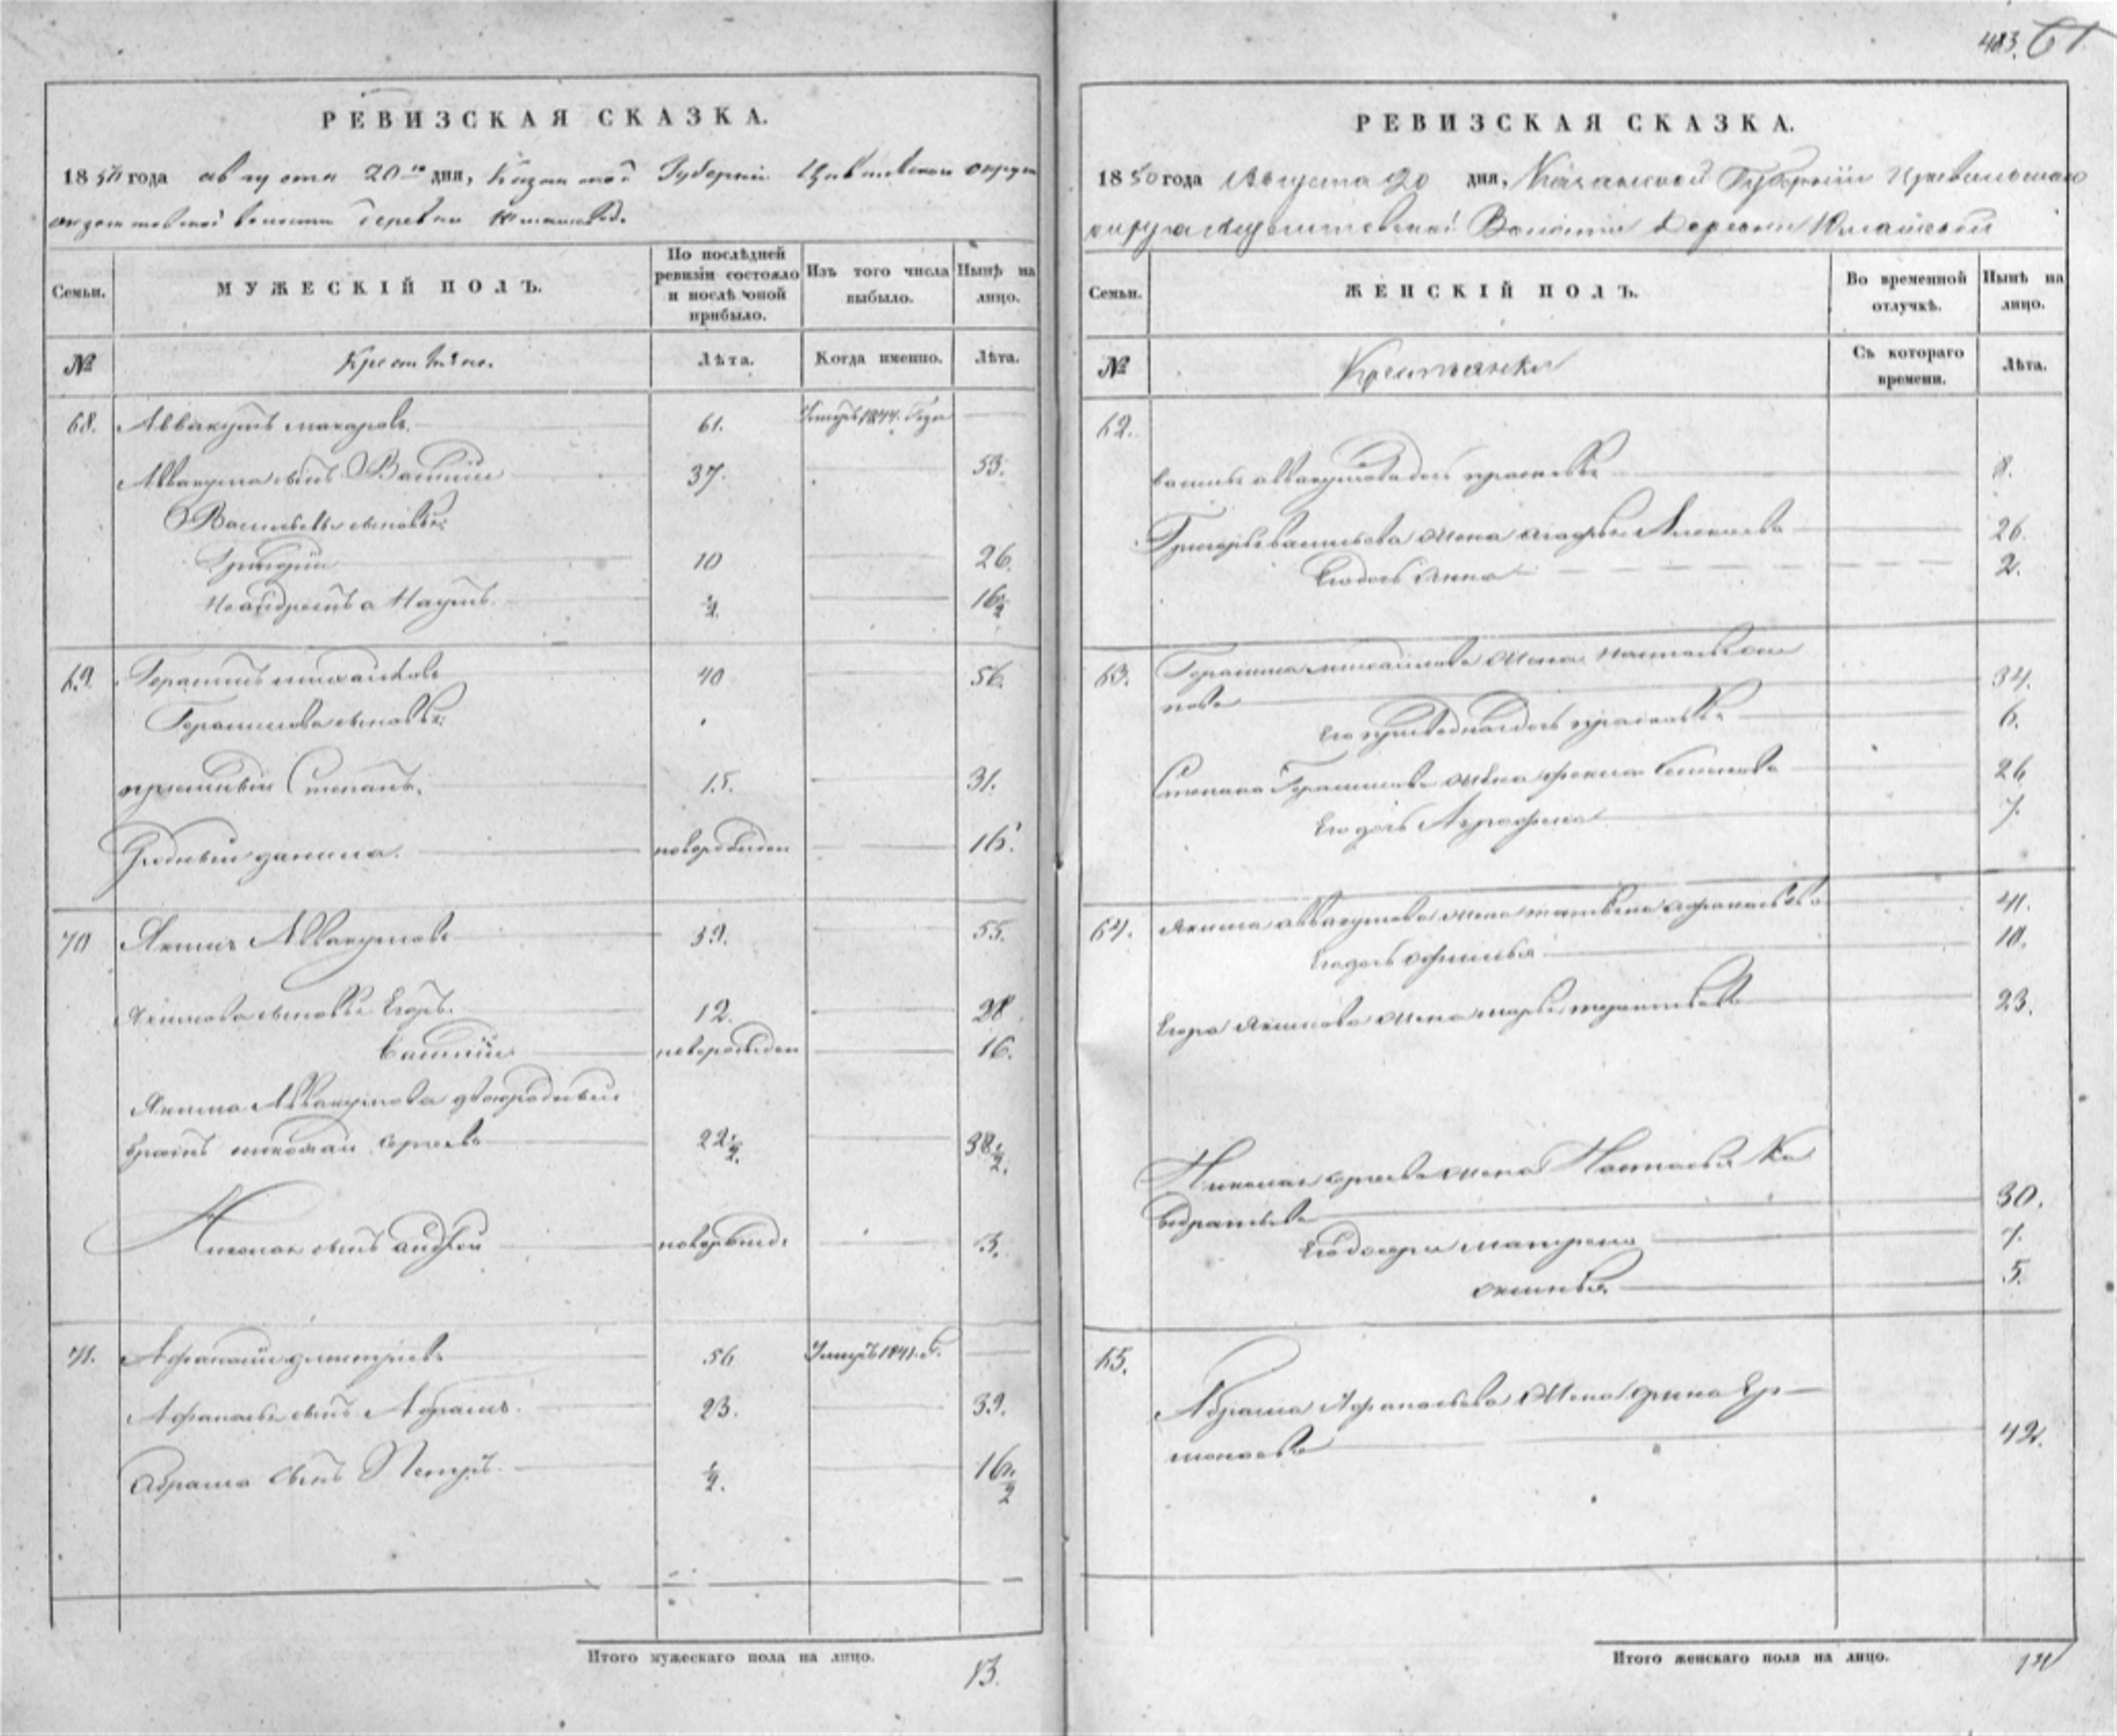 483. 61
РЕВИЗСКАЯ СКАЗКА.
1850 года августа 20го дня, Казанской Губернии Цивильскаго округа
волости деревни
Семьи.
МУЖЕСКІЙ ПОЛЪ.
По послѣдней ревизіи состояло и послѣ оной прибыло.
Изъ того числа выбыло.
Нынѣ на лицо.
№
Крестьяне.
Лѣта.
Когда именно.
Лѣта.
68. Аввакумъ макаровъ. 61. Умеръ 1844. Года
Аввакума сынъ Василій 37. 53.
Васильевы сыновья:
Григорій 10 26.
Наумъ ½. 16½
69. Герасимъ михайловъ 40 56.
Герасимова сыновья:
Степанъ. 15. 31.
Родный данила. новорожден 16.
70 Якимъ Аввакумовъ 39. 55.
Якимова сыновья Егоръ. 12. 28
Василій новорожден 16.
Якима Аввакумова двоюродный
братъ николай сергеевъ 22½. 38½.
Николая сынъ андрей новорожд. 3.
71. Афанасій димитріевъ 56 Умеръ 1841. г.
Афанасья сынъ Абрамъ. 23. 39.
Абрама сынъ Петръ. ½. 16½
Итого мужескаго пола на лицо. 13.
РЕВИЗСКАЯ СКАЗКА.
1850 года Августа 20 дня, Казанской Губерніи Цивильскаго
округа Волости Деревни
Семьи.
ЖЕНСКІЙ ПОЛЪ.
Во временной отлучкѣ.
Нынѣ на лицо.
№
Крестьянки
Съ котораго времени.
Лѣта.
62.
василья аввакумова дочь прасковья 8.
Григорья васильева жена агафья Алексеева 26.
Его дочь Анна 2.
63. Герасима михайлова жена настасья
нова 34.
Его дочь прасковья 6.
Степана Герасимова жена фекла Семенова 26
Его дочь Аграфена 7.
64. Якима аввакумова жена татьяна афанасьева 41.
Его дочь офимья 10.
Егора Якимова жена марья 23.
Николая сергеева жена Настасья Ко
ндратьева 30.
Его дочери матрена 7.
5.
65.
Абрама Афанасьева Жена Ер-
молаева 42.
Итого женскаго пола на лицо.